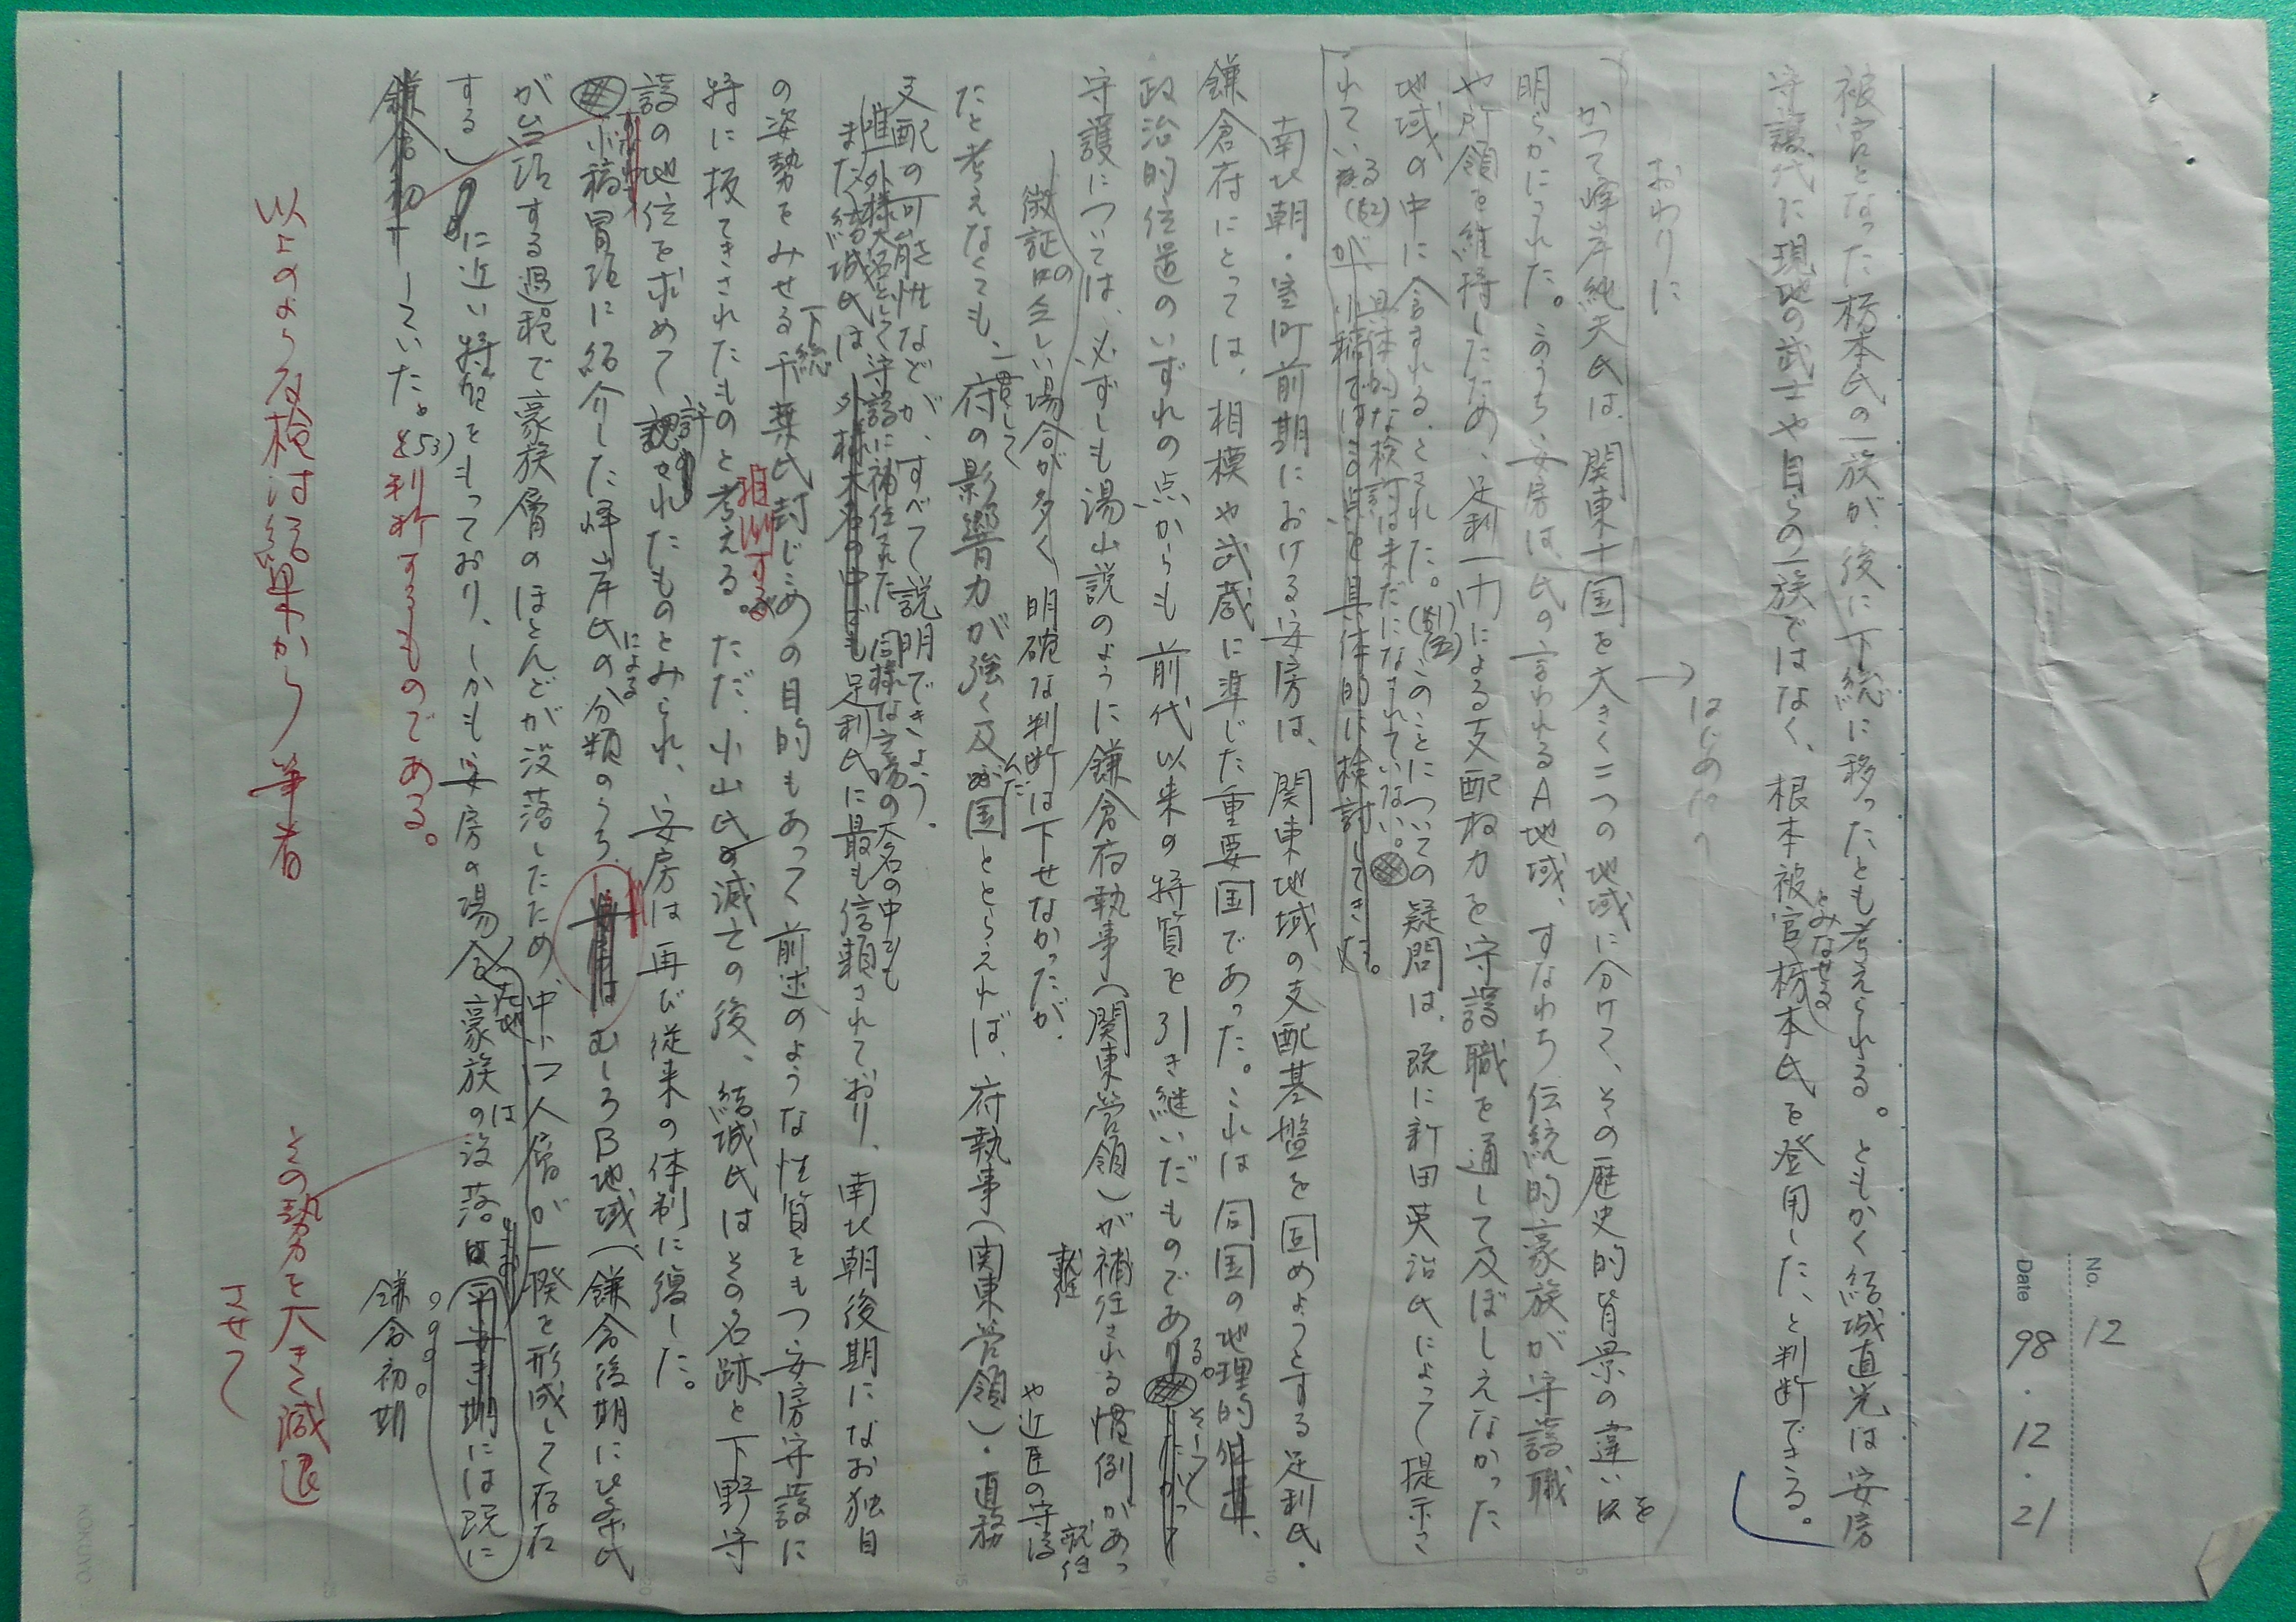 No. 12
Date 98・12・21
被官となった栃本氏の一族が、後に下総に移ったとも考えられる。ともかく結城直光は安房
守護代に現地の武士や自らの一族ではなく、根本被官とみなせる栃本氏を登用した、と判断できる。
はじめに?
おわりに →
かつて峰岸純夫氏は、関東十国を大きく二つの地域に分けて、その歴史的背景の違いを
明らかにされた。このうち、安房は、氏の言われるA地域、すなわち伝統的豪族が守護職
や所領を維持したため、足利一門による支配力を守護職を通して及ぼしえなかった
地域の中に含まれる、とされた。(51)このことについての疑問は、既に新田英治氏によって提示さ
れている(52)が、具体的な検討は未だになされていない。
小稿ではこの点を具体的に検討してきた。
南北朝・室町前期における安房は、関東地域の支配基盤を固めようとする足利氏・
鎌倉府にとっては、相模や武蔵に準じた重要国であった。これは同国の地理的、
政治的位置のいずれの点からも前代以来の特質を引き継いだものである。そして
守護については、必ずしも湯山説のように鎌倉府執事(関東管領)が補任される慣例があっ
就任
徴証の乏しい場合が多く明確な判断は下せなかったが、
や近臣の守護就任
たと考えなくても、一貫して府の影響力が強く及んだ国ととらえれば、府執事(関東管領)・直務
支配の可能性などが、すべて説明できよう。
唯一外様大名として守護に補任された結城氏は同様な立場の大名の中でも
また結城氏は外様大名の中でも足利氏に最も信頼されており、南北朝後期になお独自
の姿勢をみせる下総千葉氏封じこめの目的もあって前述のような性質をもつ安房守護に
特に抜てきされたものと推測する。ただ、小山氏の滅亡の後、結城氏はその名跡と下野守
護の地位を求めて許されたものとみられ、安房は再び従来の体制に復した。
すなわち小稿冒頭に紹介した峰岸氏による分類のうち、安房はむしろB地域(鎌倉後期に北条氏
が台頭する過程で豪族層のほとんどが没落したため、中小国人層が一揆を形成して存在
する)に近い特質をもっており、しかも安房の場合、豪族の没落は平安末期には既に
ただ
は
鎌倉初期
鎌倉初
していた。(53)と判断するものである。
以上のような検討結果から筆者
その勢力を大きく減退
させて
KOKUYO